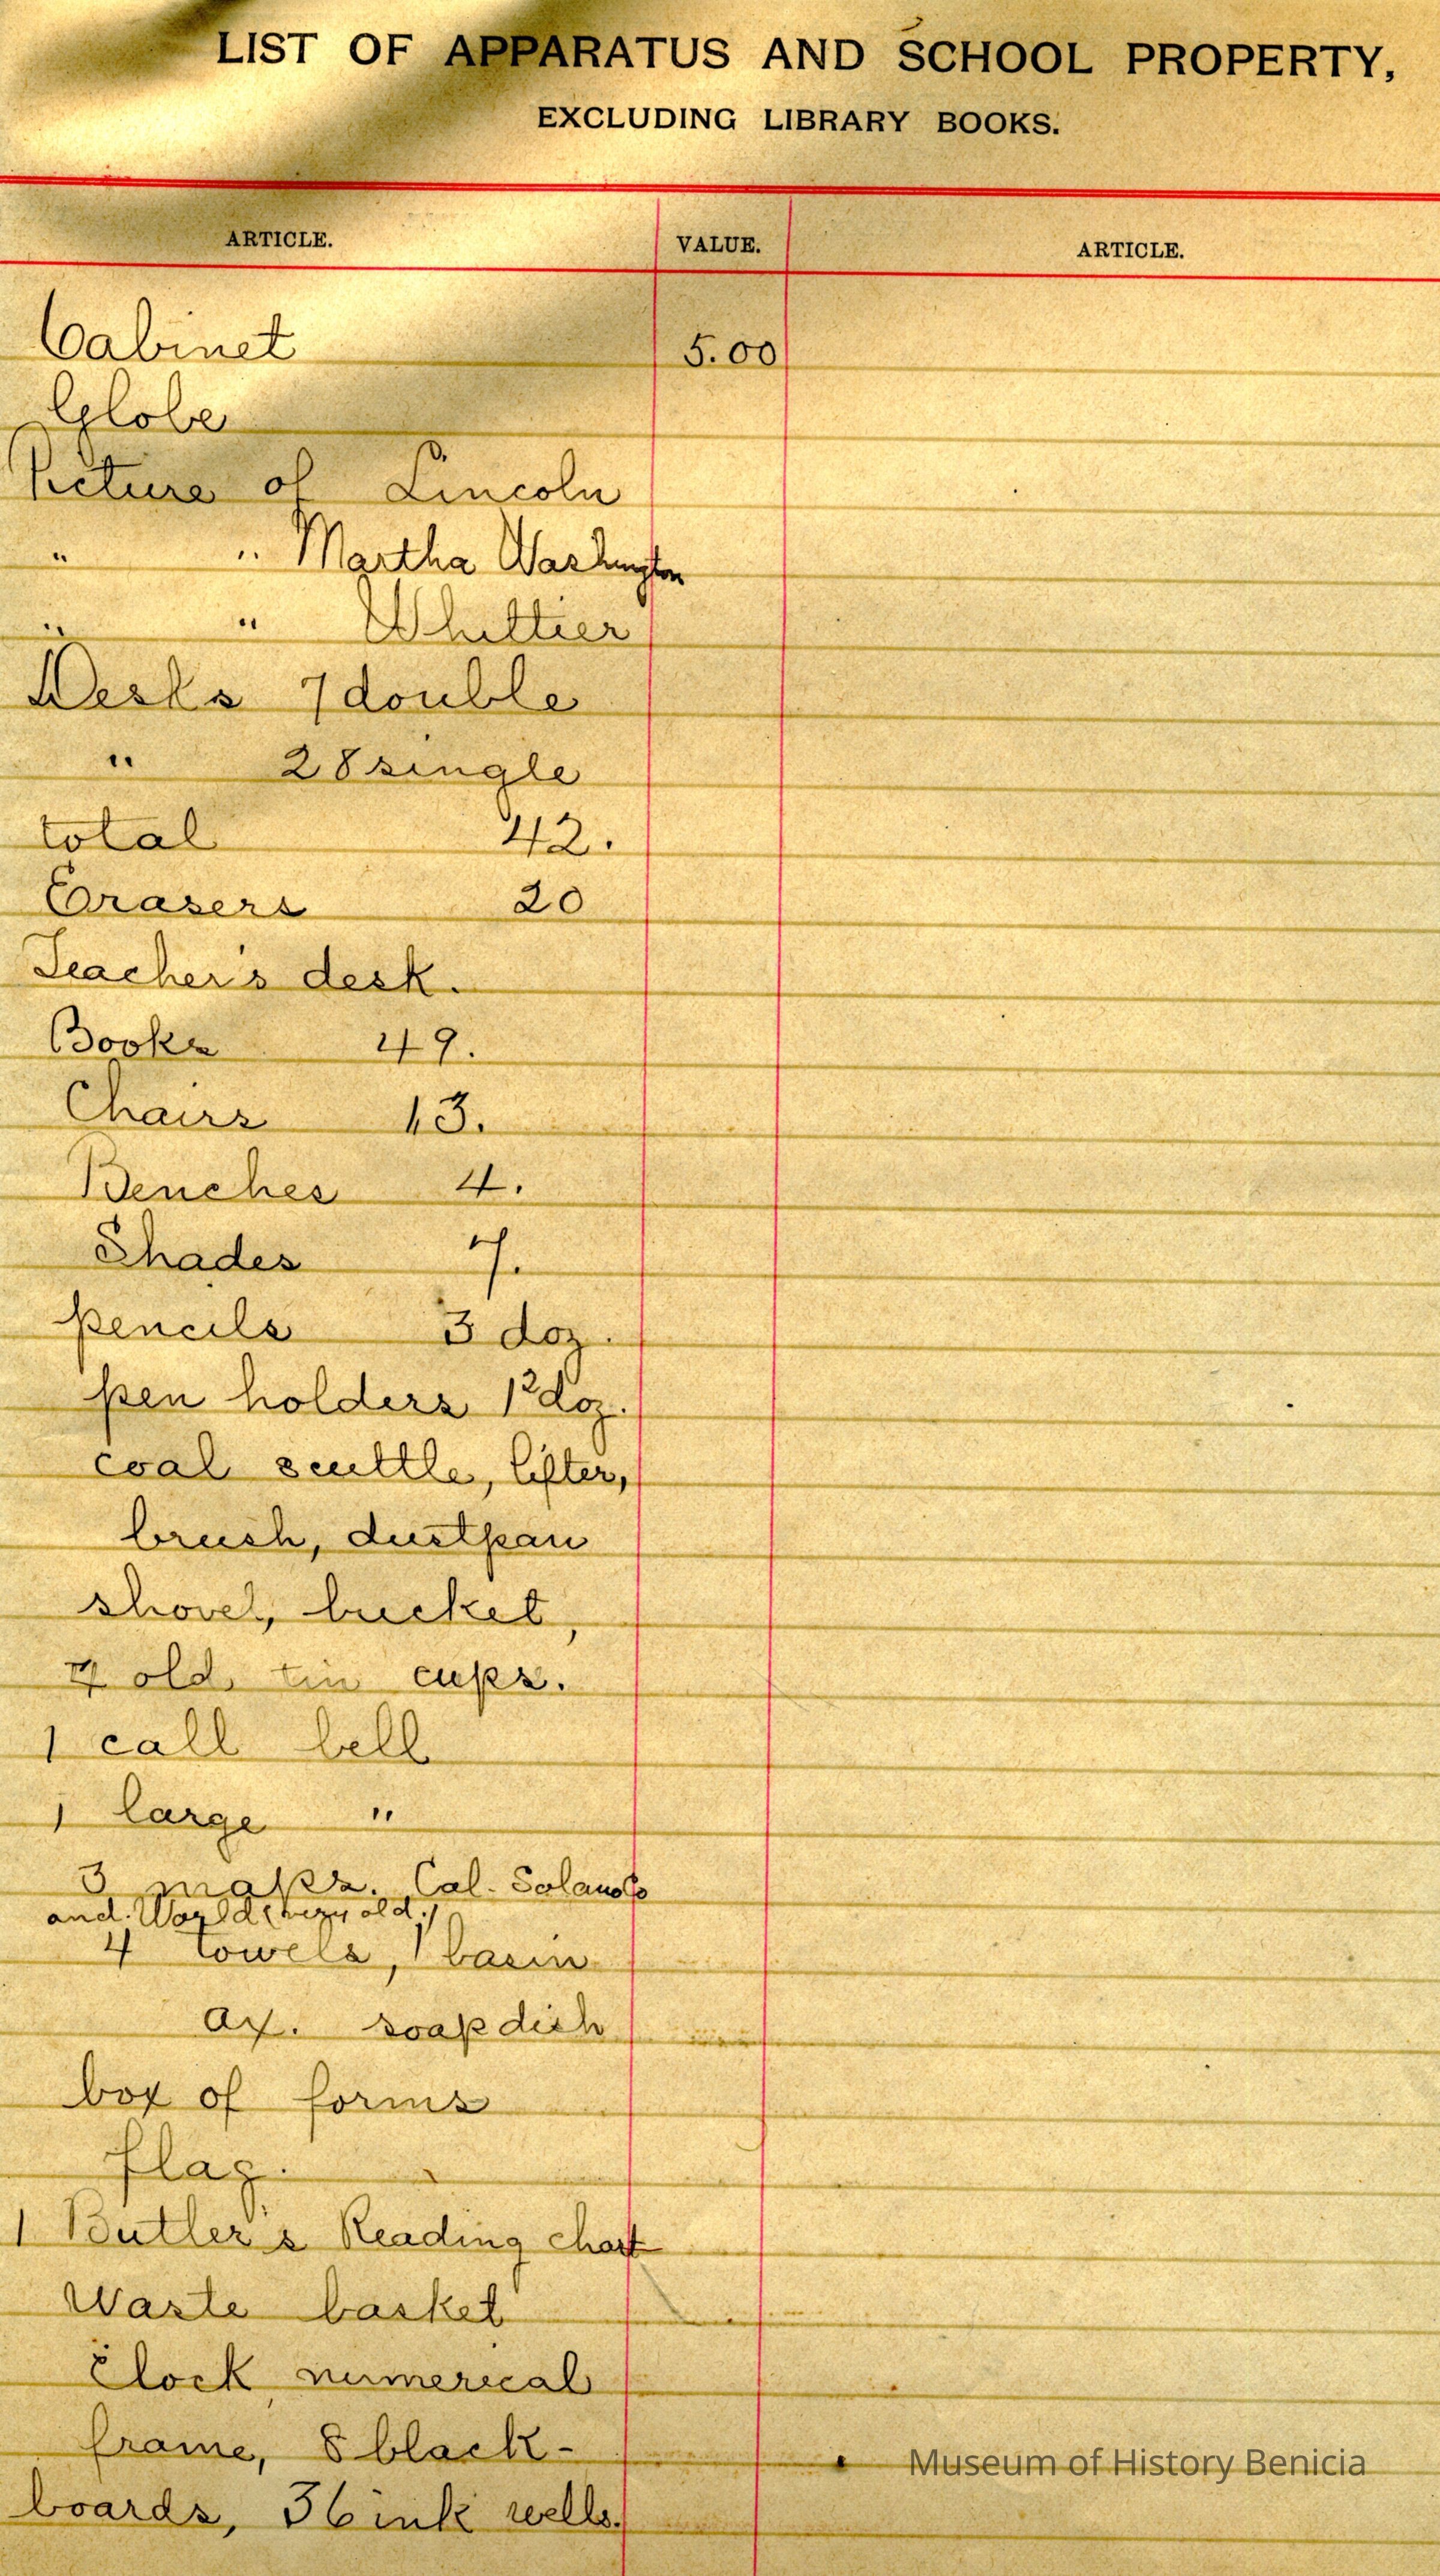 LIST OF APPARATUS AND SCHOOL PROPERTY,
EXCLUDING LIBRARY BOOKS.
ARTICLE. VALUE. ARTICLE.
Cabinet 5.00
Globe
Picture of Lincoln
" " Martha Washington
" " Whittier
Desks 7 double
" 28 single
total 42.
Erasers 20
Teacher's desk.
Books 49.
Chairs 13.
Benches 4.
Shades 7.
pencils 3 doz.
pen holders doz.
coal scuttle, lifter,
brush, dustpan
shovel, bucket,
old tin cups.
1 call bell
1 large "
3 maps. Cal. Solano Co
and World (very old.)
4 towels, 1 basin
ax. soap dish
box of forms
flag.
1 Butler's Reading chart
Waste basket
Clock, numerical
frame, 8 black-
boards, 36 ink wells.
Museum of History Benicia